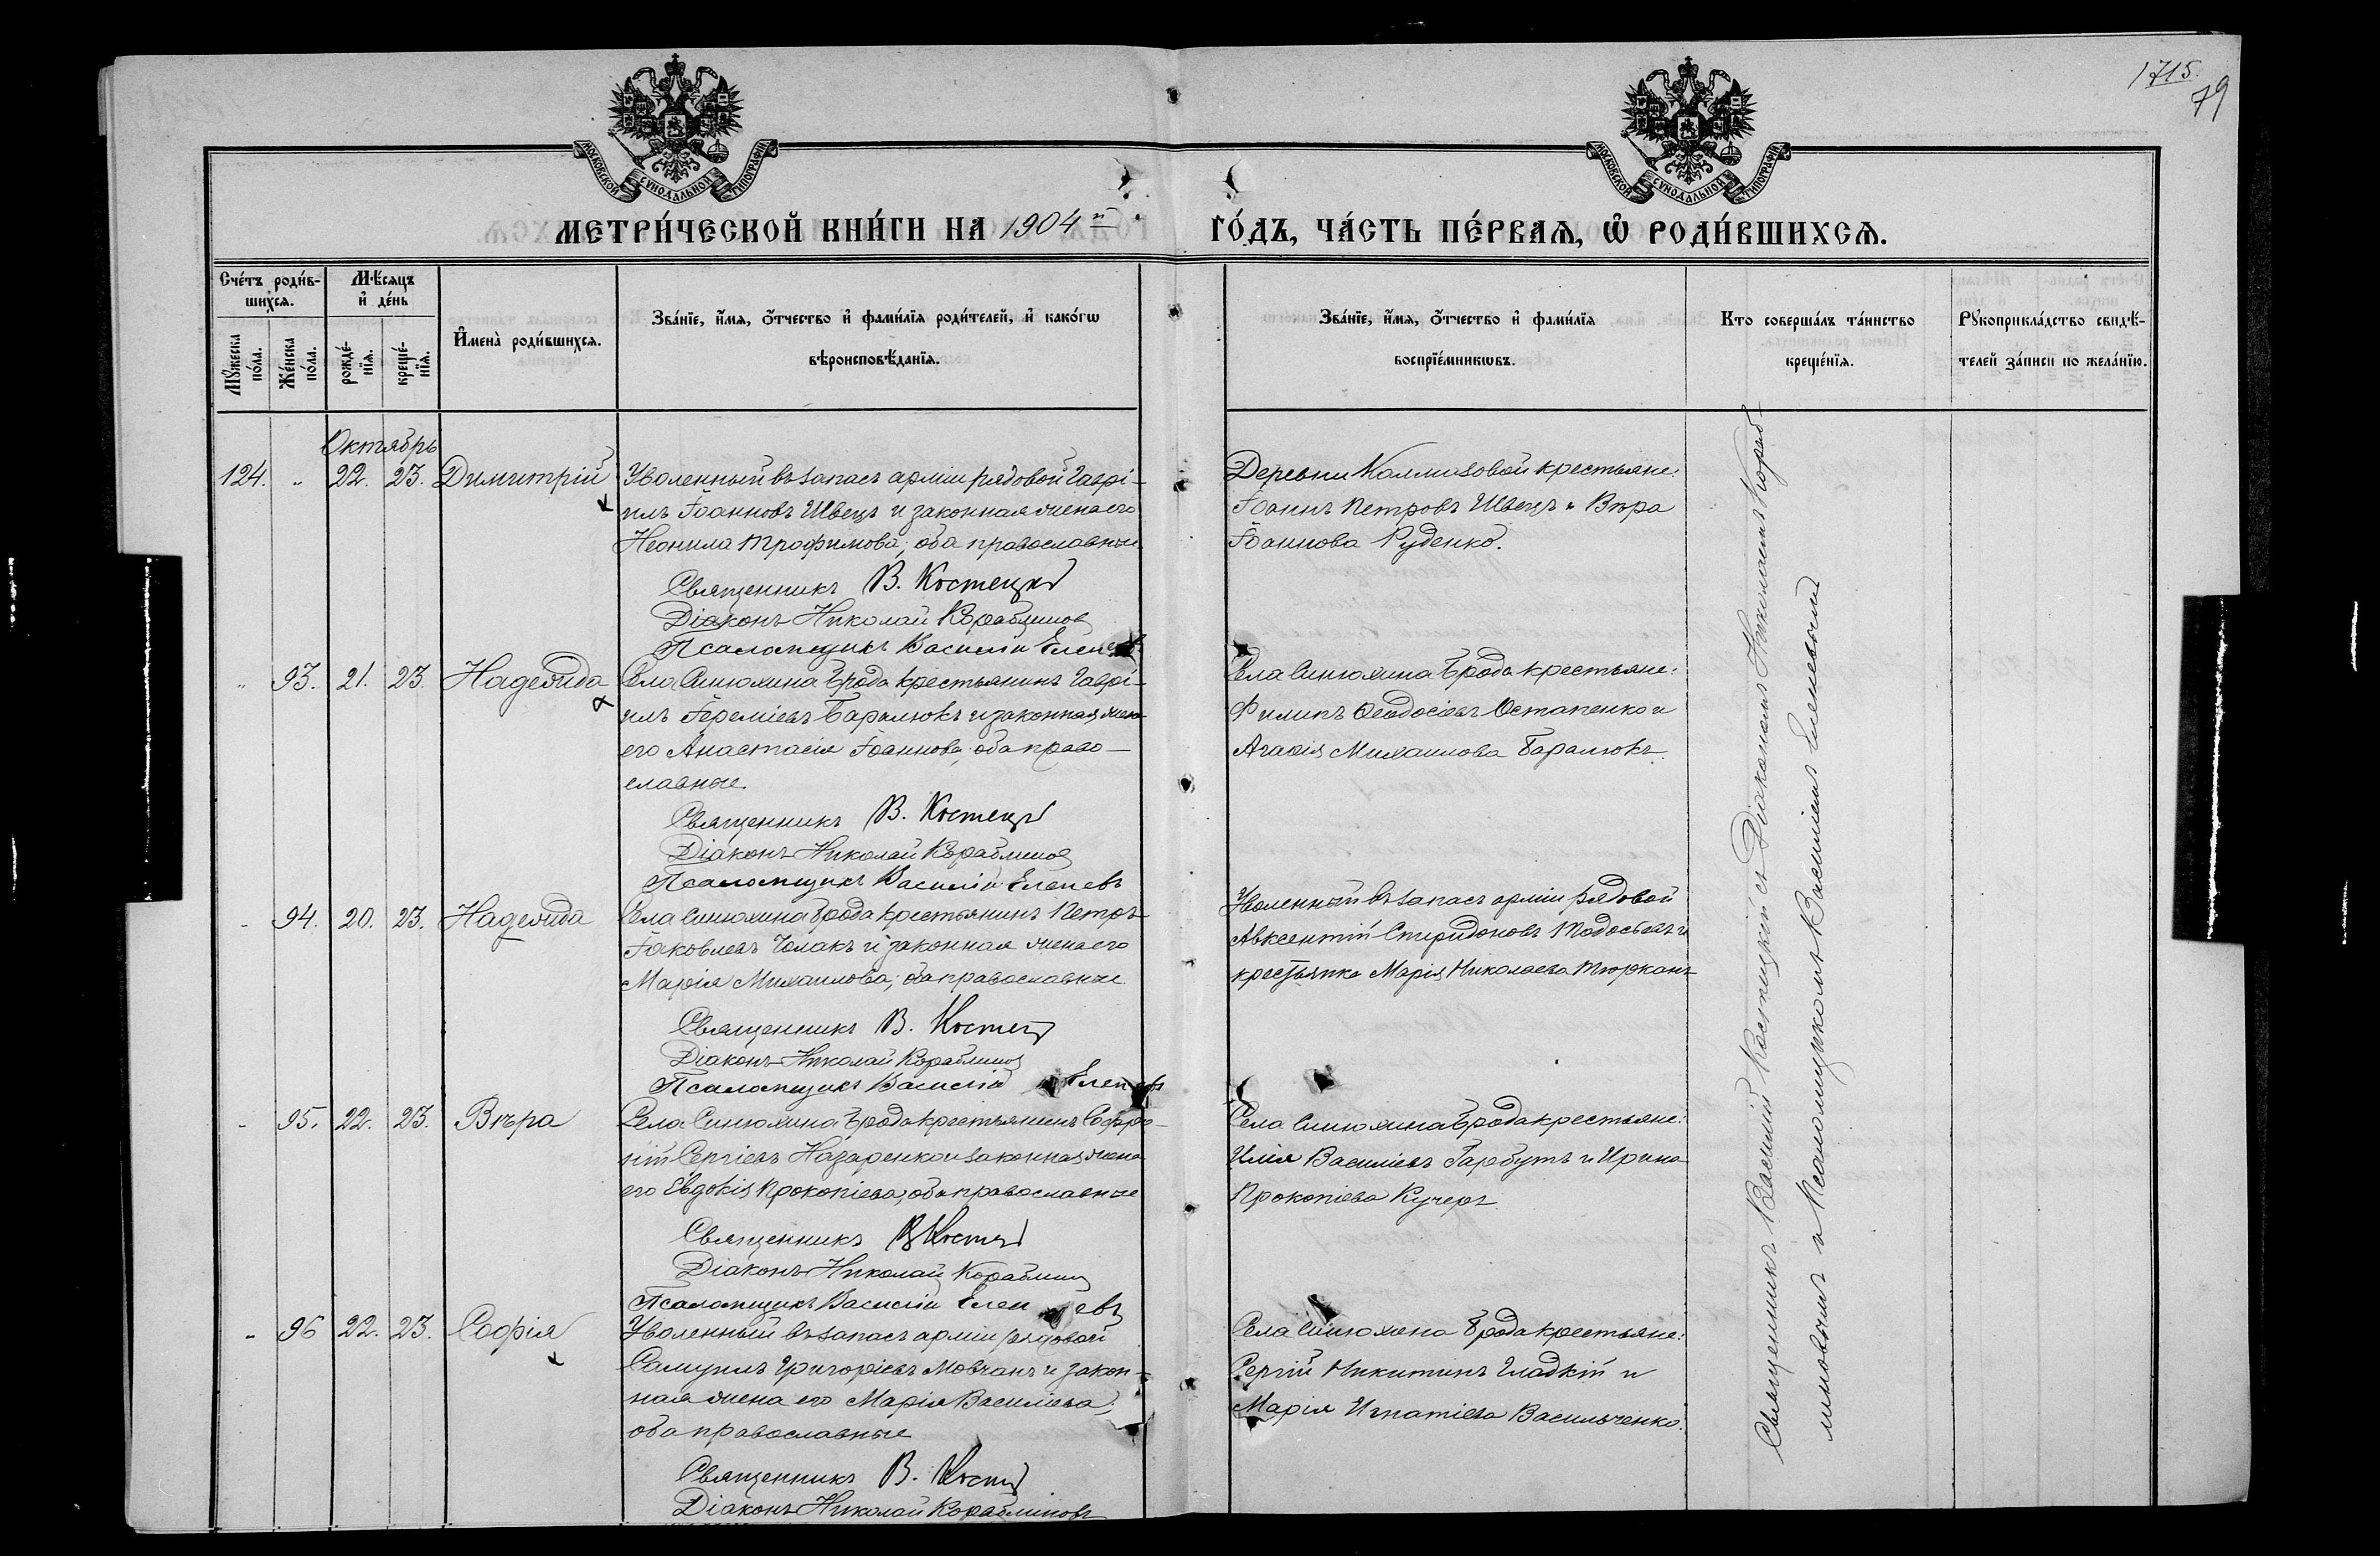 1715.
79
МОСКОВСКОЙ СѴНОДАЛЬНОЙ ТИПОГРАФІИ
МОСКОВСКОЙ СѴНОДАЛЬНОЙ ТИПОГРАФІИ
МЕТРИ́ЧЕСКОЙ КНИ́ГИ НА 1904 й
ГО́ДЪ, ЧА́СТЬ ПЕ́РВАѦ, Ѡ҆ РОДИ́ВШИХСѦ.
Сче́тъ роди́в-
шихся.
Мѣ́сяцъ
и҆ де́нь
Мꙋ́жеска
по́ла.
Же́нска
по́ла.
рожде́-
нїя.
креще́-
нїя.
И҆мена̀ роди́вшихся.
Зва́нїе, и҆́мя, ѻ҆́тчество и҆ фами́лїя роди́телей, и҆ како́гѡ
вѣроисповѣ́данїя.
Зва́нїе, и҆́мя, ѻ҆́тчество и҆ фами́лїя
воспрїе́мникѡвъ.
Кто соверша́лъ та́инство
креще́нїя.
Рꙋкоприкла́дство свидѣ́-
телей за́писи по жела́нїю.
Октябрь
124. " 22. 23. Димитрій
Уволенный въ запасъ арміи рядовой Гаврі-
илъ Іоанновъ Швецъ и законная жена его
Неонила Трофимова, оба православные
Священникъ В. Костецкій
Діаконъ Николай Кораблинов
Псаломщикъ Василій Еленев
Деревни Колмазовой крестьяне:
Іоаннъ Петровъ Швецъ и Вѣра
Іоаннова Руденко.
" 93. 21. 23. Надежда
Села Синюхина Брода крестьянинъ Гаврі-
илъ Іереміевъ Баралюкъ и законная жена
его Анастасія Іоаннова, оба право-
славные.
Священникъ В. Костецкій
Діаконъ Николай Кораблинов
Псаломщикъ Василій Еленевъ
Села Синюхина Брода крестьяне:
Филипъ Ѳеодосіевъ Остапенко и
Агафія Михаилова Баралюкъ.
" 94. 20. 23. Надежда
Села Синюхина Брода крестьянинъ Петръ
Іаковлевъ Чолакъ и законная жена его
Марія Михаилова, оба православные.
Священникъ В. Костец
Діаконъ Николай Кораблинов
Псаломщикъ Василій Еленев
Уволенный въ запасъ арміи рядовой
Авксентій Спиридоновъ Тодосьевъ и
крестьянка Марія Николаева Тюрканъ
" 95. 22. 23. Вѣра
Села Синюхина Брода крестьянинъ Софро-
ній Сергіевъ Назаренко и законная жена
его Евдокія Прокопіева, оба православные
Священникъ В Костец
Діаконъ Николай Кораблинов
Псаломщикъ Василій Еленевъ
Села Синюхина Брода крестьяне:
Илія Василіевъ Гарбутъ и Ирина
Прокопіева Кучеръ.
" 96 22. 23. Софія
Уволенный въ запасъ арміи рядовой
Самуилъ Григоріевъ Мовчанъ и закон-
ная жена его Марія Василіева,
оба православные
Священникъ В. Костец
Діаконъ Николай Кораблиновъ
Села Синюхина Брода крестьяне:
Сергій Никитинъ Гладкій и
Марія Игнатіева Васильченко.
Священникъ Василій Костецкій съ Діакономъ Николаемъ Кораб-
линовымъ и Псаломщикомъ Василіемъ Еленевымъ